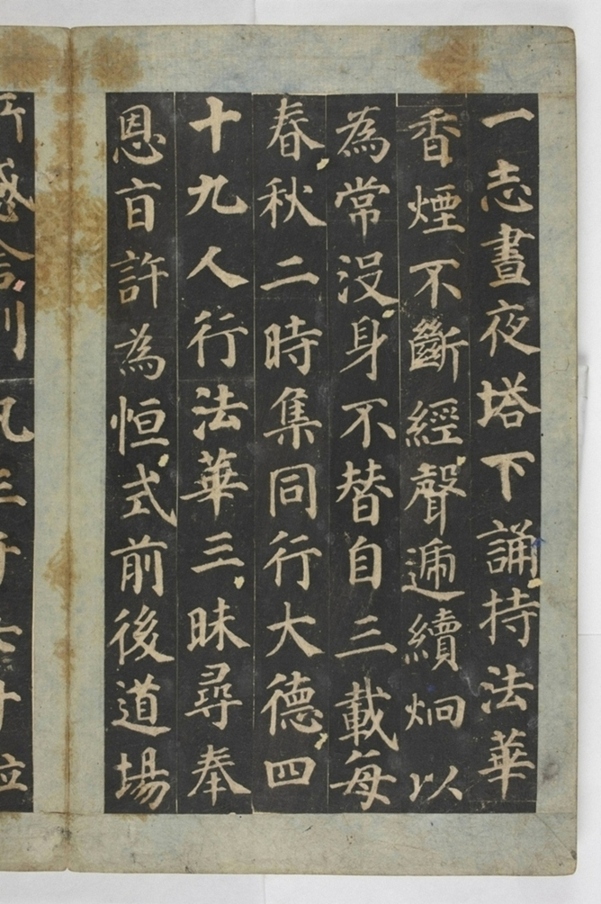 一志晝夜塔下誦持法華
香煙不斷經聲遞續炯以
為常没身不替自三載每
春秋二時集同行大德四
十九人行法華三昧尋奉
恩旨許為恒式前後道場
所感舍利凡三千七十粒